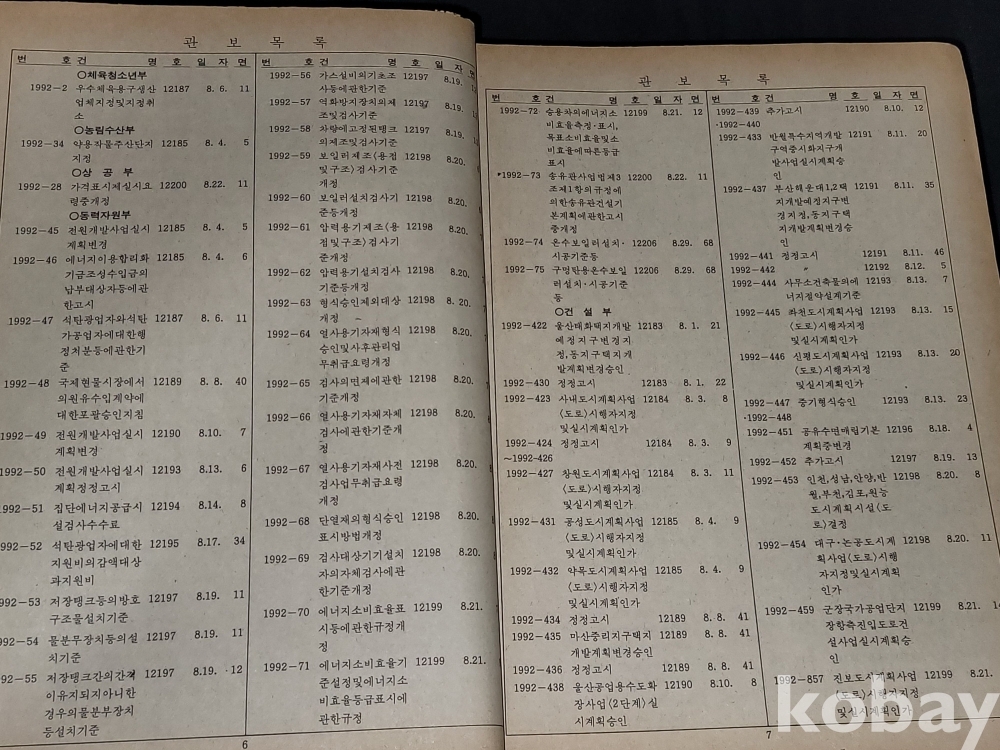 관 보 목 록
번 호 건 명 호 일 자 면
○체육청소년부
1992-2 우수체육용구생산 12187 8. 6. 11
업체지정및지정취
소
○농림수산부
1992-34 약용작물주산단지 12185 8. 4. 5
지정
○상 공 부
1992-28 가격표시제실시요 12200 8.22. 11
령중개정
○동력자원부
1992-45 전원개발사업실시 12185 8. 4. 5
계획변경
1992-46 에너지이용합리화 12185 8. 4. 6
기금조성수입금의
납부대상자등에관
한고시
1992-47 석탄광업자와석탄 12187 8. 6. 11
가공업자에대한행
정처분등에관한기
준
1992-48 국제현물시장에서 12189 8. 8. 40
의원유수입계약에
대한포괄승인지침
1992-49 전원개발사업실시 12190 8.10. 7
계획변경
1992-50 전원개발사업실시 12193 8.13. 6
계획정정고시
1992-51 집단에너지공급시 12194 8.14. 8
설검사수수료
992-52 석탄광업자에대한 12195 8.17. 34
지원비의감액대상
과지원비
992-53 저장탱크등의방호 12197 8.19. 11
구조물설치기준
992-54 물분무장치등의설 12197 8.19. 11
치기준
992-55 저장탱크간의간격 12197 8.19. 12
이유지되지아니한
경우의물분무장치
등설치기준
6
번 호 건 명 호 일 자 면
1992-56 가스설비의기초조 12197 8.19.
사등에관한기준
1992-57 역화방지장치의제 12197 8.19.
조및검사기준
1992-58 차량에고정된탱크 12197 8.19.
의제조및검사기준
1992-59 보일러제조〈용접 12198 8.20.
및구조〉검사기준
개정
1992-60 보일러설치검사기 12198 8.20.
준등개정
1992-61 압력용기제조〈용 12198 8.20.
접및구조〉검사기
준개정
1992-62 압력용기설치검사 12198 8.20.
기준등개정
1992-63 형식승인제외대상 12198 8.20.
개정
1992-64 열사용기자재형식 12198 8.20.
승인및사후관리업
무취급요령개정
1992-65 검사의면제에관한 12198 8.20.
기준개정
1992-66 열사용기자재자체 12198 8.20.
검사에관한기준개
정
1992-67 열사용기자재사전 12198 8.20.
검사업무취급요령
개정
1992-68 단열재의형식승인 12198 8.20.
표시방법개정
1992-69 검사대상기기설치 12198 8.20.
자의자체검사에관
한기준개정
1992-70 에너지소비효율표 12199 8.21.
시등에관한규정개
정
1992-71 에너지소비효율기 12199 8.21.
준설정및에너지소
비효율등급표시에
관한규정
관 보 목 록
번 호 건 명 호 일 자 면
1992-72 승용차의에너지소 12199 8.21. 12
비효율측정·표시,
목표소비효율및소
비효율에따른등급
표시
1992-73 송유관사업법제3 12200 8.22. 11
조제1항의규정에
의한송유관건설기
본계획에관한고시
중개정
1992-74 온수보일러설치· 12206 8.29. 68
시공기준등
1992-75 구멍탄용온수보일 12206 8.29. 68
러설치·시공기준
등
○건 설 부
1992-422 울산태화택지개발 12183 8. 1. 21
예정지구변경지
정,동지구택지개
발계획변경승인
1992-430 정정고시 12183 8. 1. 22
1992-423 사내도시계획사업 12184 8. 3. 8
〈도로〉시행자지정
및실시계획인가
1992-424 정정고시 12184 8. 3. 9
~1992-426
1992-427 창원도시계획사업 12184 8. 3. 11
〈도로〉시행자지정
및실시계획인가
1992-431 공성도시계획사업 12185 8. 4. 9
〈도로〉시행자지정
및실시계획인가
1992-432 약목도시계획사업 12185 8. 4. 9
〈도로〉시행자지정
및실시계획인가
1992-434 정정고시 12189 8. 8. 41
1992-435 마산중리지구택지 12189 8. 8. 41
개발계획변경승인
1992-436 정정고시 12189 8. 8. 41
1992-438 울산공업용수도화 12190 8.10. 8
장사업〈2단계〉실
시계획승인
번 호 건 명 호 일 자 면
1992-439 추가고시 12190 8.10. 12
·1992-440
1992-433 반월특수지역개발 12191 8.11. 20
구역중시화지구개
발사업실시계획승
인
1992-437 부산해운대1,2택 12191 8.11. 35
지개발예정지구변
경지정,동지구택
지개발계획변경승
인
1992-441 정정고시 12191 8.11. 46
1992-442 〃 12192 8.12. 5
1992-444 사무소건축물의에 12193 8.13. 7
너지절약설계기준
1992-445 좌천도시계획사업 12193 8.13. 15
〈도로〉시행자지정
및실시계획인가
1992-446 신평도시계획사업 12193 8.13. 20
〈도로〉시행자지정
및실시계획인가
1992-447 중기형식승인 12193 8.13. 23
·1992-448
1992-451 공유수면매립기본 12196 8.18. 4
계획중변경
1992-452 추가고시 12197 8.19. 13
1992-453 인천,성남,안양,반 12198 8.20. 8
월,부천,김포,원능
도시계획시설〈도
로〉결정
1992-454 대구·논공도시계 12198 8.20. 11
획사업〈도로〉시행
자지정및실시계획
인가
1992-459 군장국가공업단지 12199 8.21. 14
장항측진입도로건
설사업실시계획승
인
1992-857 진보도시계획사업 12199 8.21.
〈도로〉시행자지정
및실시계획인가
7
kobay